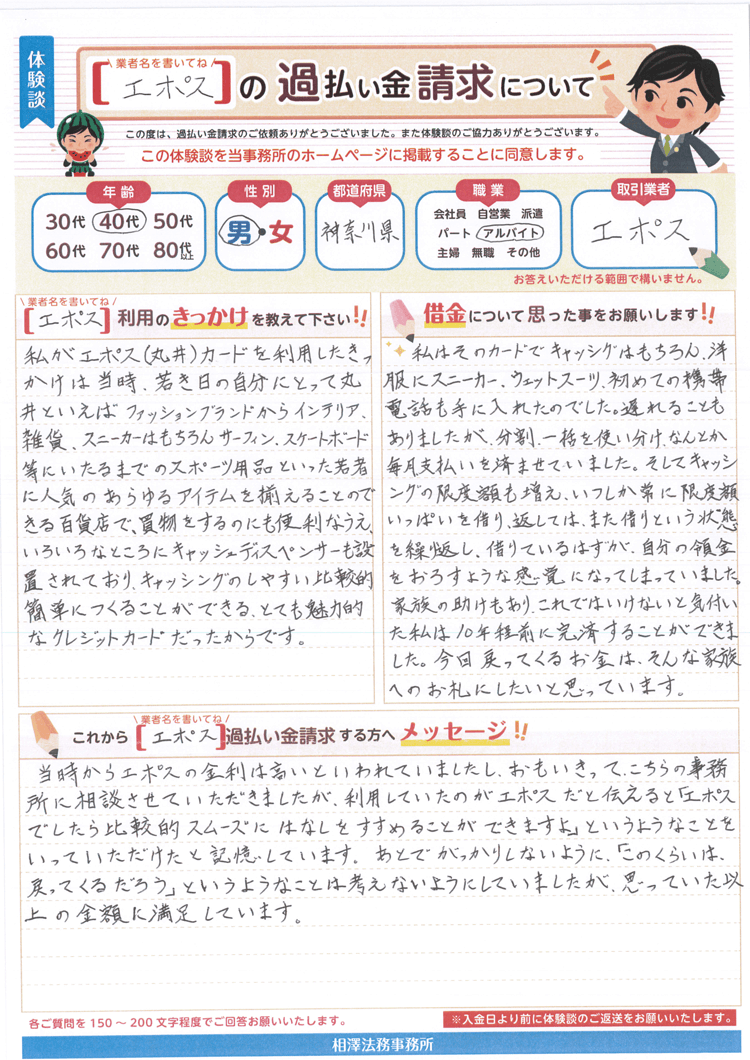 体験談
業者名を書いてね
[エポス]の過払い金請求について
この度は、過払い金請求のご依頼ありがとうございました。また体験談のご協力ありがとうございます。
この体験談を当事務所のホームページに掲載することに同意します。
年齢
30代 40代 50代
60代 70代 80代以上
性別
男・女
都道府県
神奈川県
職業
会社員 自営業 派遣
パート アルバイト
主婦 無職 その他
取引業者
エポス
お答えいただける範囲で構いません。
業者名を書いてね
[エポス]利用のきっかけを教えて下さい!!
私がエポス(丸井)カードを利用したきっ
かけは当時、若き日の自分にとって丸
井といえば ファッションブランドからインテリア、
雑貨、スニーカーはもちろん サーフィン、スケートボード
等にいたるまでのスポーツ用品といった若者
に人気の あらゆるアイテムを揃えることので
きる百貨店で、買物をするのにも便利なうえ、
いろいろなところにキャッシュディスペンサーも設
置されており、キャッシングのしやすい比較的
簡単につくることができる、とても魅力的
なクレジットカードだったからです。
借金について思った事をお願いします!!
私はそのカードでキャッシングはもちろん、洋
服にスニーカー、ウェットスーツ、初めての携帯
電話も手に入れたのでした。遅れることも
ありましたが、分割、一括を使い分け、なんとか
毎月支払いを済ませていました。そしてキャッシ
ングの限度額も増え、いつしか常に限度額
いっぱいを借り、返しては、また借りという状態
を繰り返し、借りているはずが、自分の預金
をおろすような感覚になってしまっていました。
家族の助けもあり、これではいけないと気付い
た私は10年程前に完済することができま
した。今日戻ってくるお金は、そんな家族
へのお礼にしたいと思っています。
業者名を書いてね
これから[エポス]過払い金請求する方へメッセージ!!
当時からエポスの金利は高いといわれていましたし、おもいきって、こちらの事務
所に相談させていただきましたが、利用していたのがエポスだと伝えると「エポス
でしたら比較的スムーズに はなしをすすめることが できますよ」というようなことを
いっていただけたと記憶しています。あとでがっかりしないように、「このくらいは、
戻ってくるだろう」というようなことは考えないようにしていましたが、思っていた以
上の金額に満足しています。
各ご質問を150～200文字程度でご回答お願いいたします。
※入金日より前に体験談のご返送をお願いいたします。
相澤法務事務所